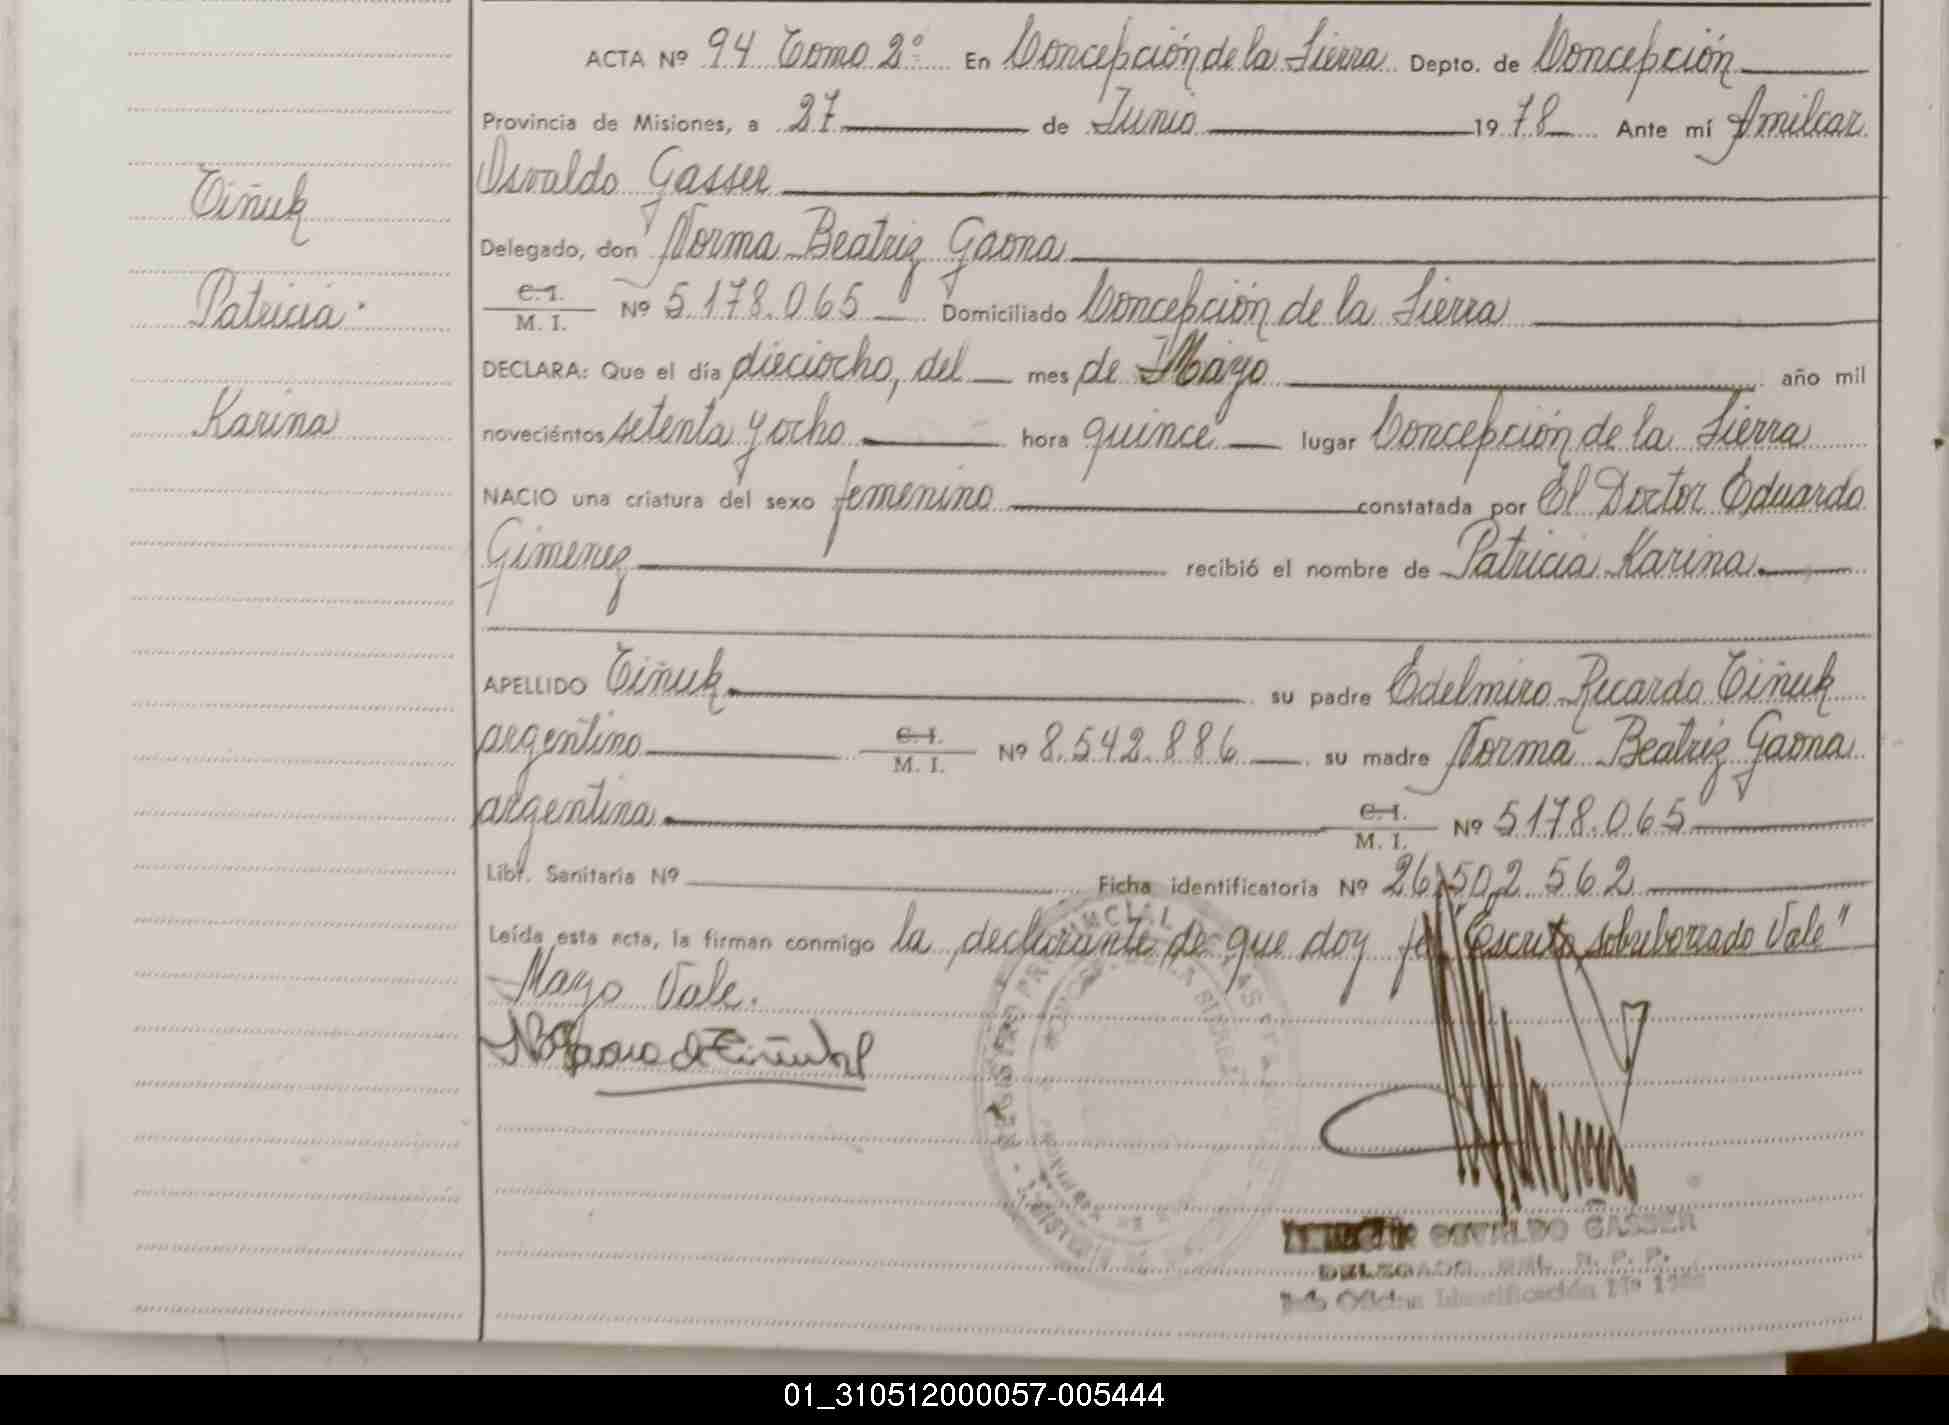 ACTA Nº 94 Tomo 2º En Concepción de la Sierra Depto. de Concepción
Provincia de Misiones, a 27 de Junio 1978 Ante mí Amilcar
Osvaldo Gasser
Delegado, don Norma Beatriz Gaona
C.I. M. I. Nº 5.178.065 Domiciliado Concepción de la Sierra
DECLARA: Que el día dieciocho, del mes de Mayo año mil
noveciéntos setenta y ocho hora quince lugar Concepción de la Sierra
NACIO una criatura del sexo femenino constatada por El Doctor Eduardo
Gimenez recibió el nombre de Patricia Karina
Tiñuk
Patricia
Karina
APELLIDO Tiñuk su padre Edelmiro Ricardo Tiñuk
argentino C.I. M. I. Nº 8.542.886 su madre Norma Beatriz Gaona
argentina C.I. M. I. Nº 5178.065
Libr. Sanitaria Nº Ficha identificatoria Nº 26.502.562
Leída esta acta, la firman conmigo la declarante de que doy fe "Escrito sobreborrado Vale"
Mayo Vale.
N B Gaona de Tiñuk
OSVALDO GASSER
DELEGADO R. P. P.
Jefe Oficina Identificación Nº
01_310512000057-005444